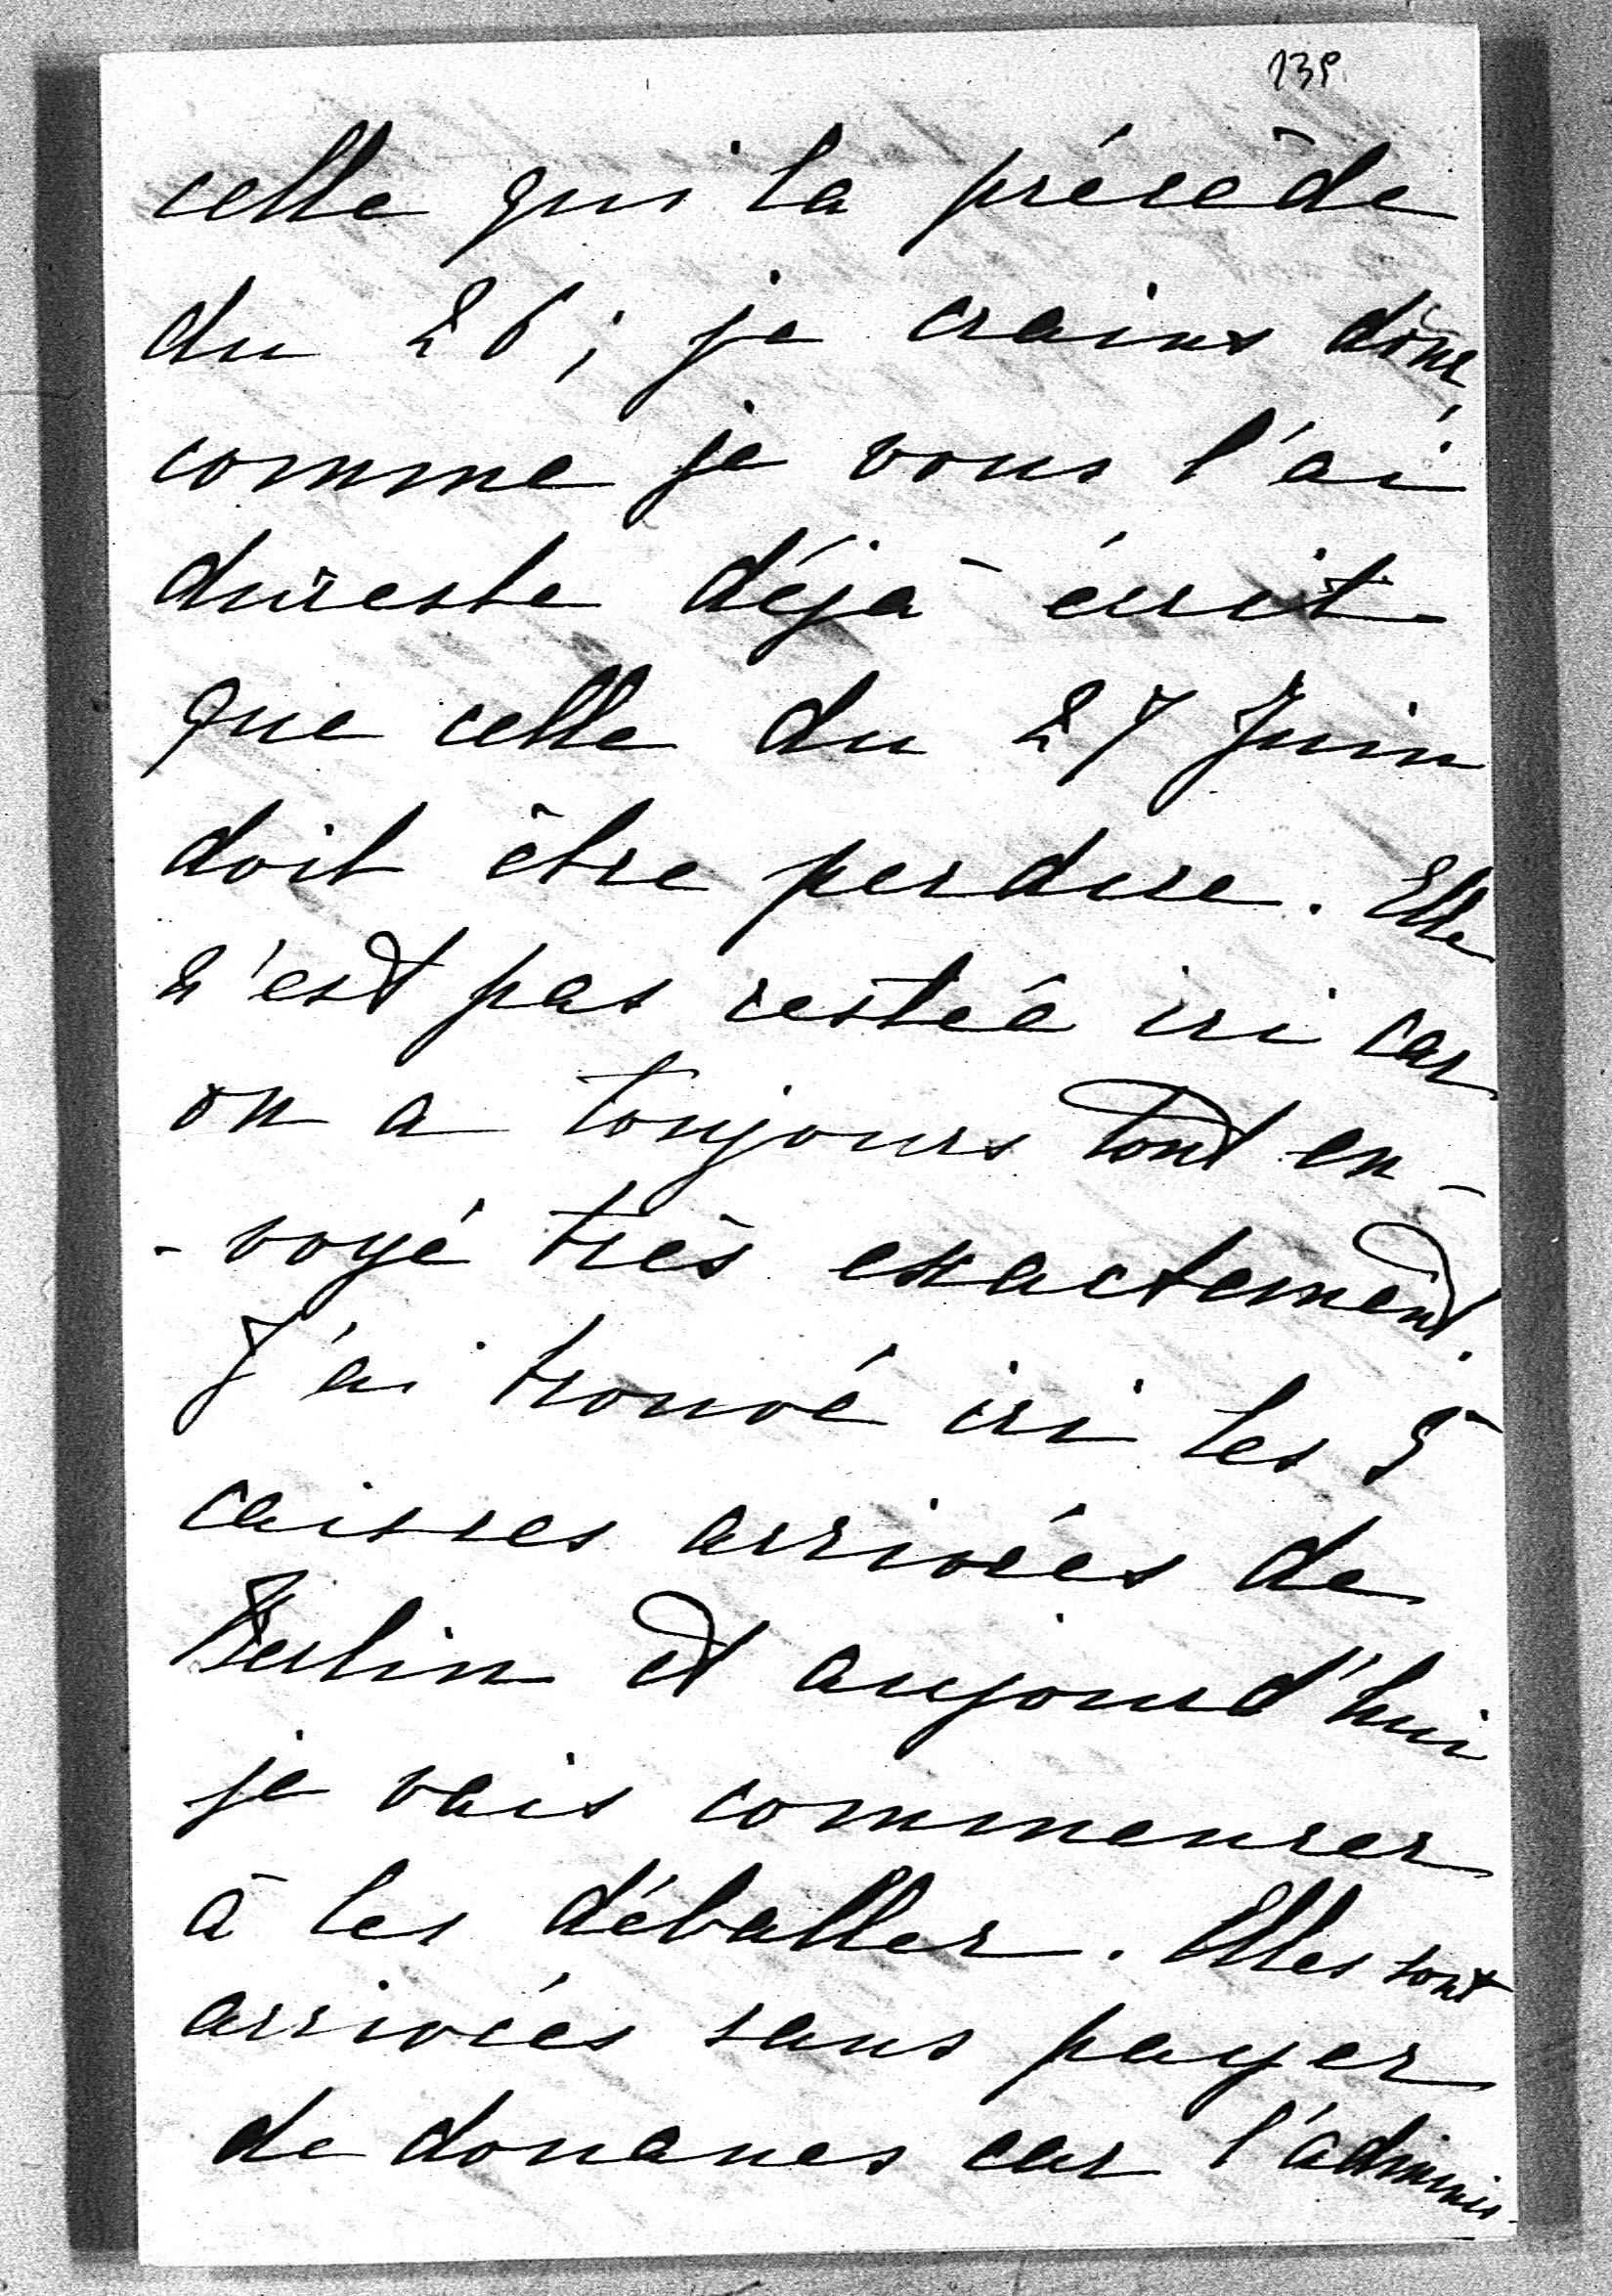 139
celle qui la précède
du 26; je crains donc,
comme je vous l'ai
dureste déjà écrit
que celle du 27 Juin
doit être perdue. Elle
n'est pas restée ici car
on a toujours tout en-
-voyé très exactement.
J'ai trouvé ici les 5
caisses arrivées de
Berlin et aujourd'hui
je vais commencer
à les déballer. Elles sont
arrivées sans payer
de douanes car l'adminis-